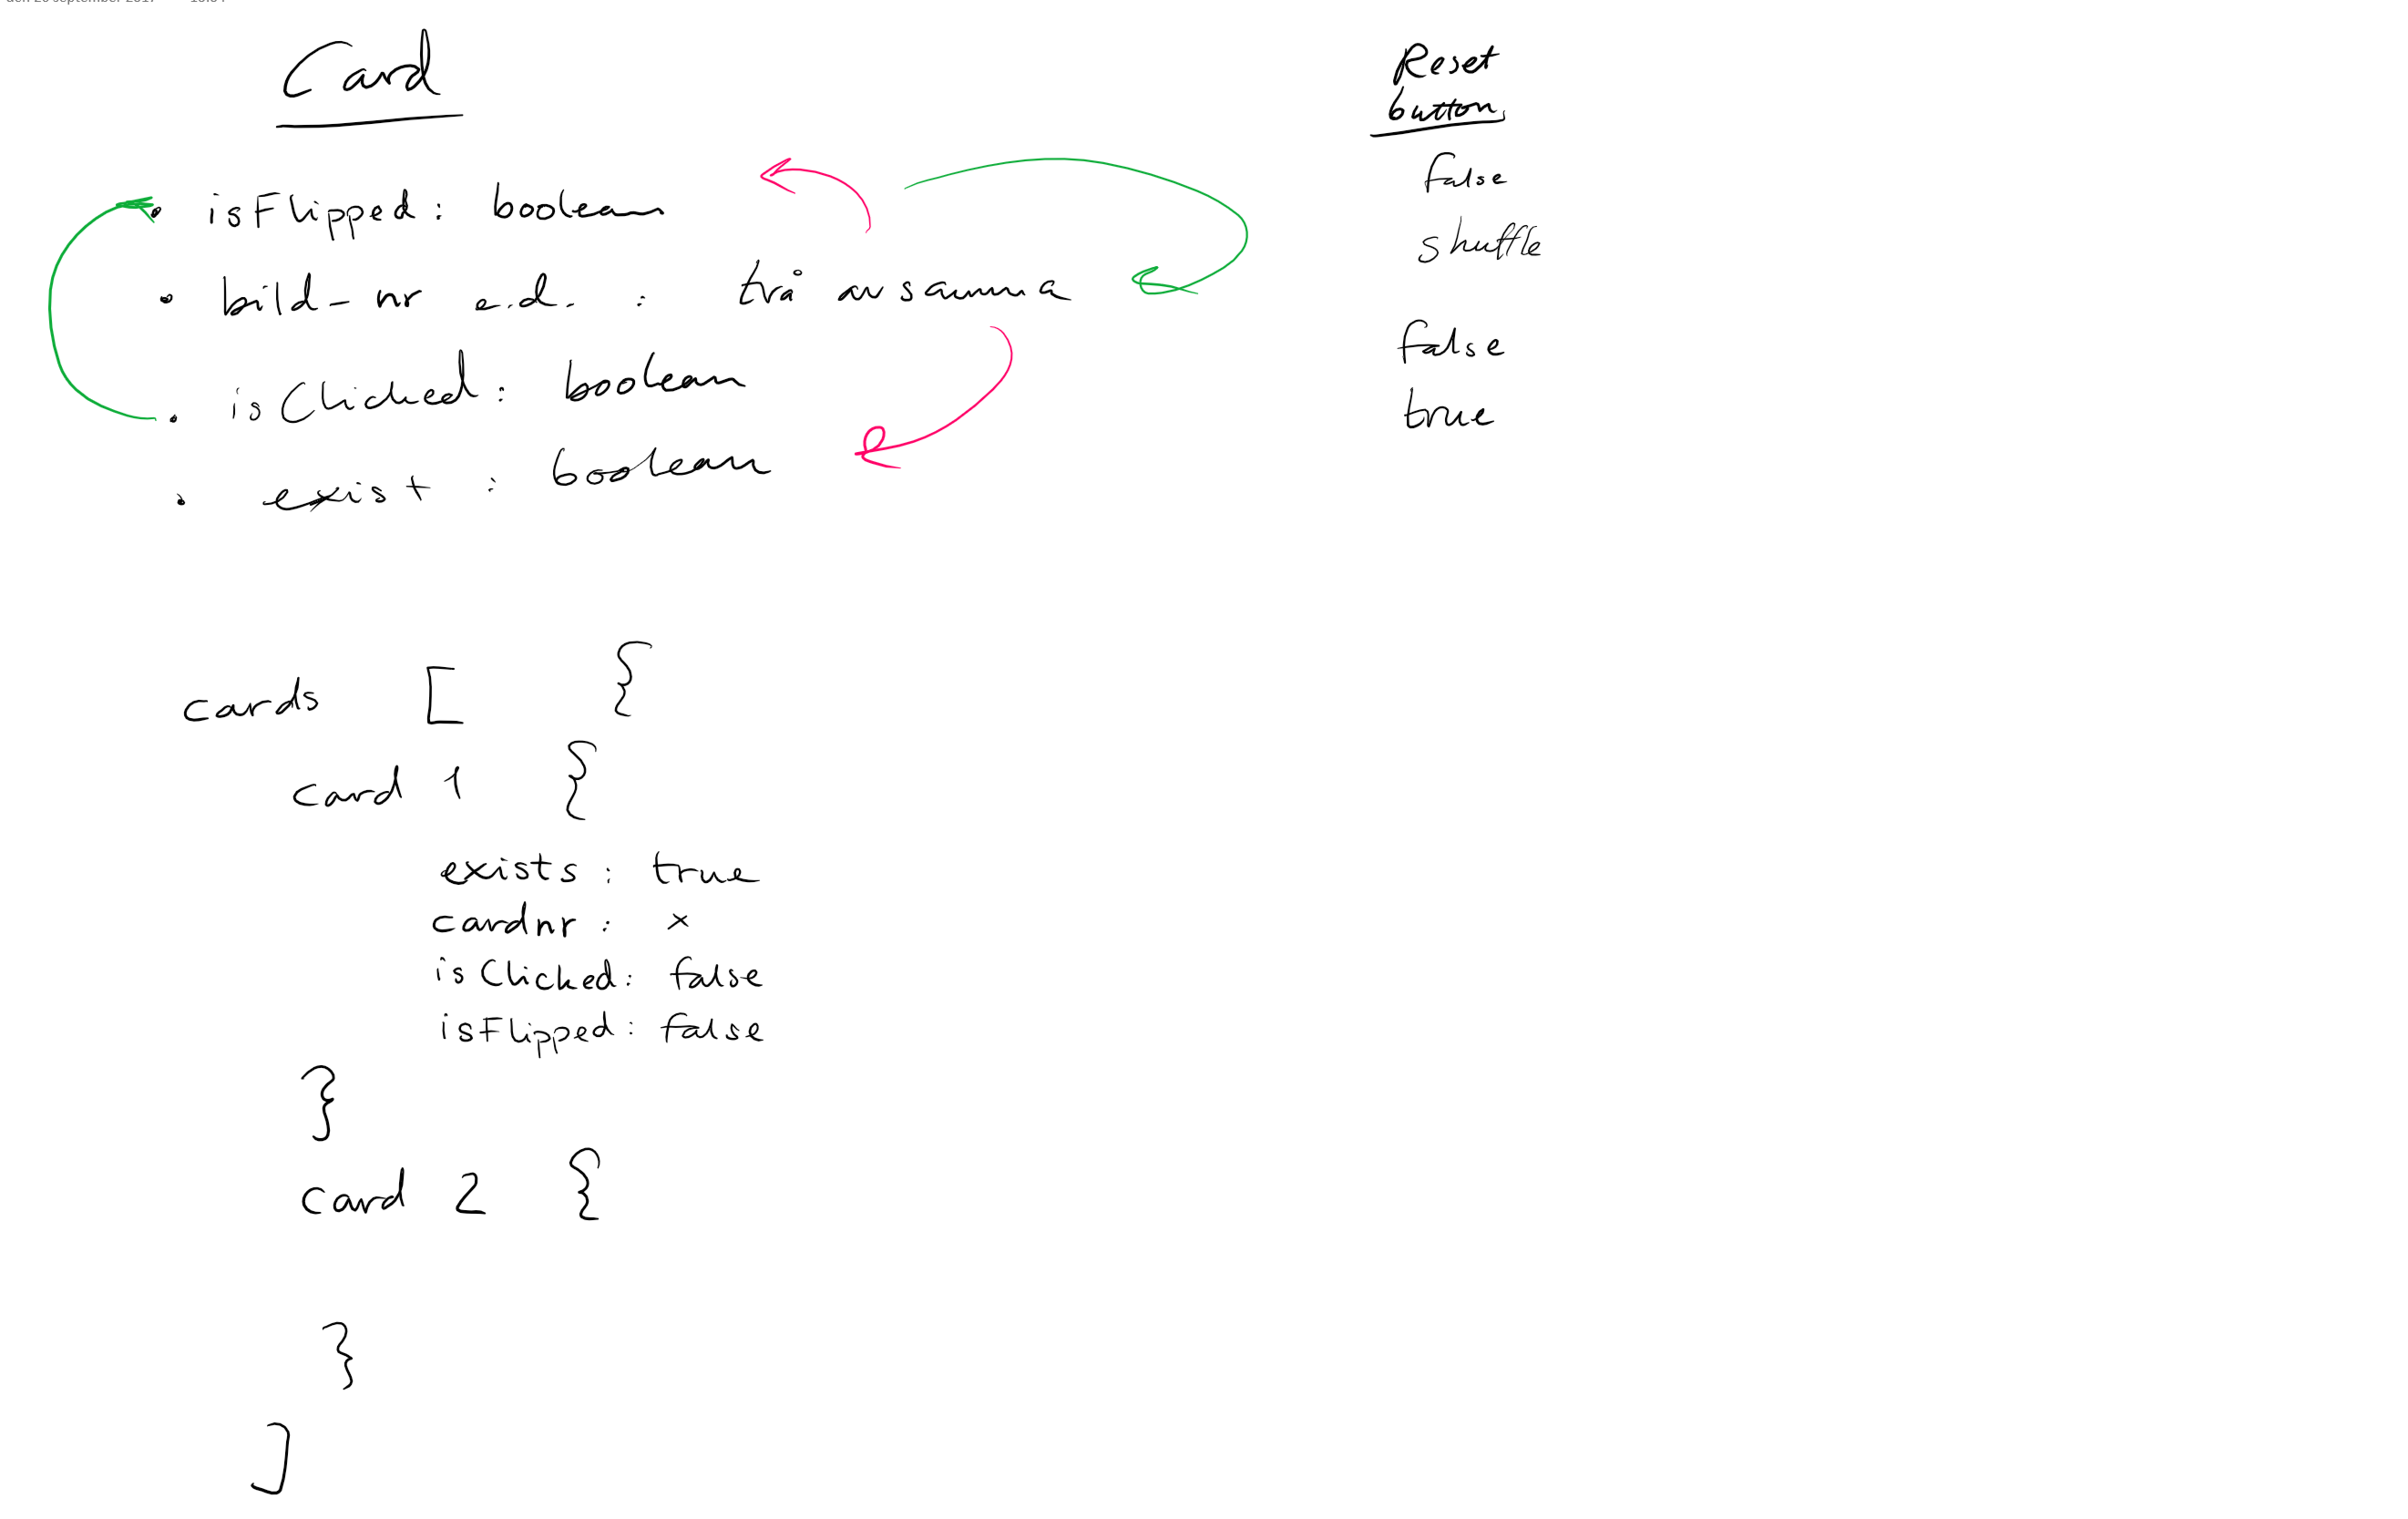 Card
• isFlipped: boolean
• bild-nr e.d. : två av samma
• isClicked: boolean
• exist : boolean
Reset
button
false
shuffle
false
true
cards [ {
card 1 {
exists: true
cardnr: x
isClicked: false
isFlipped: false
}
card 2 {
}
]